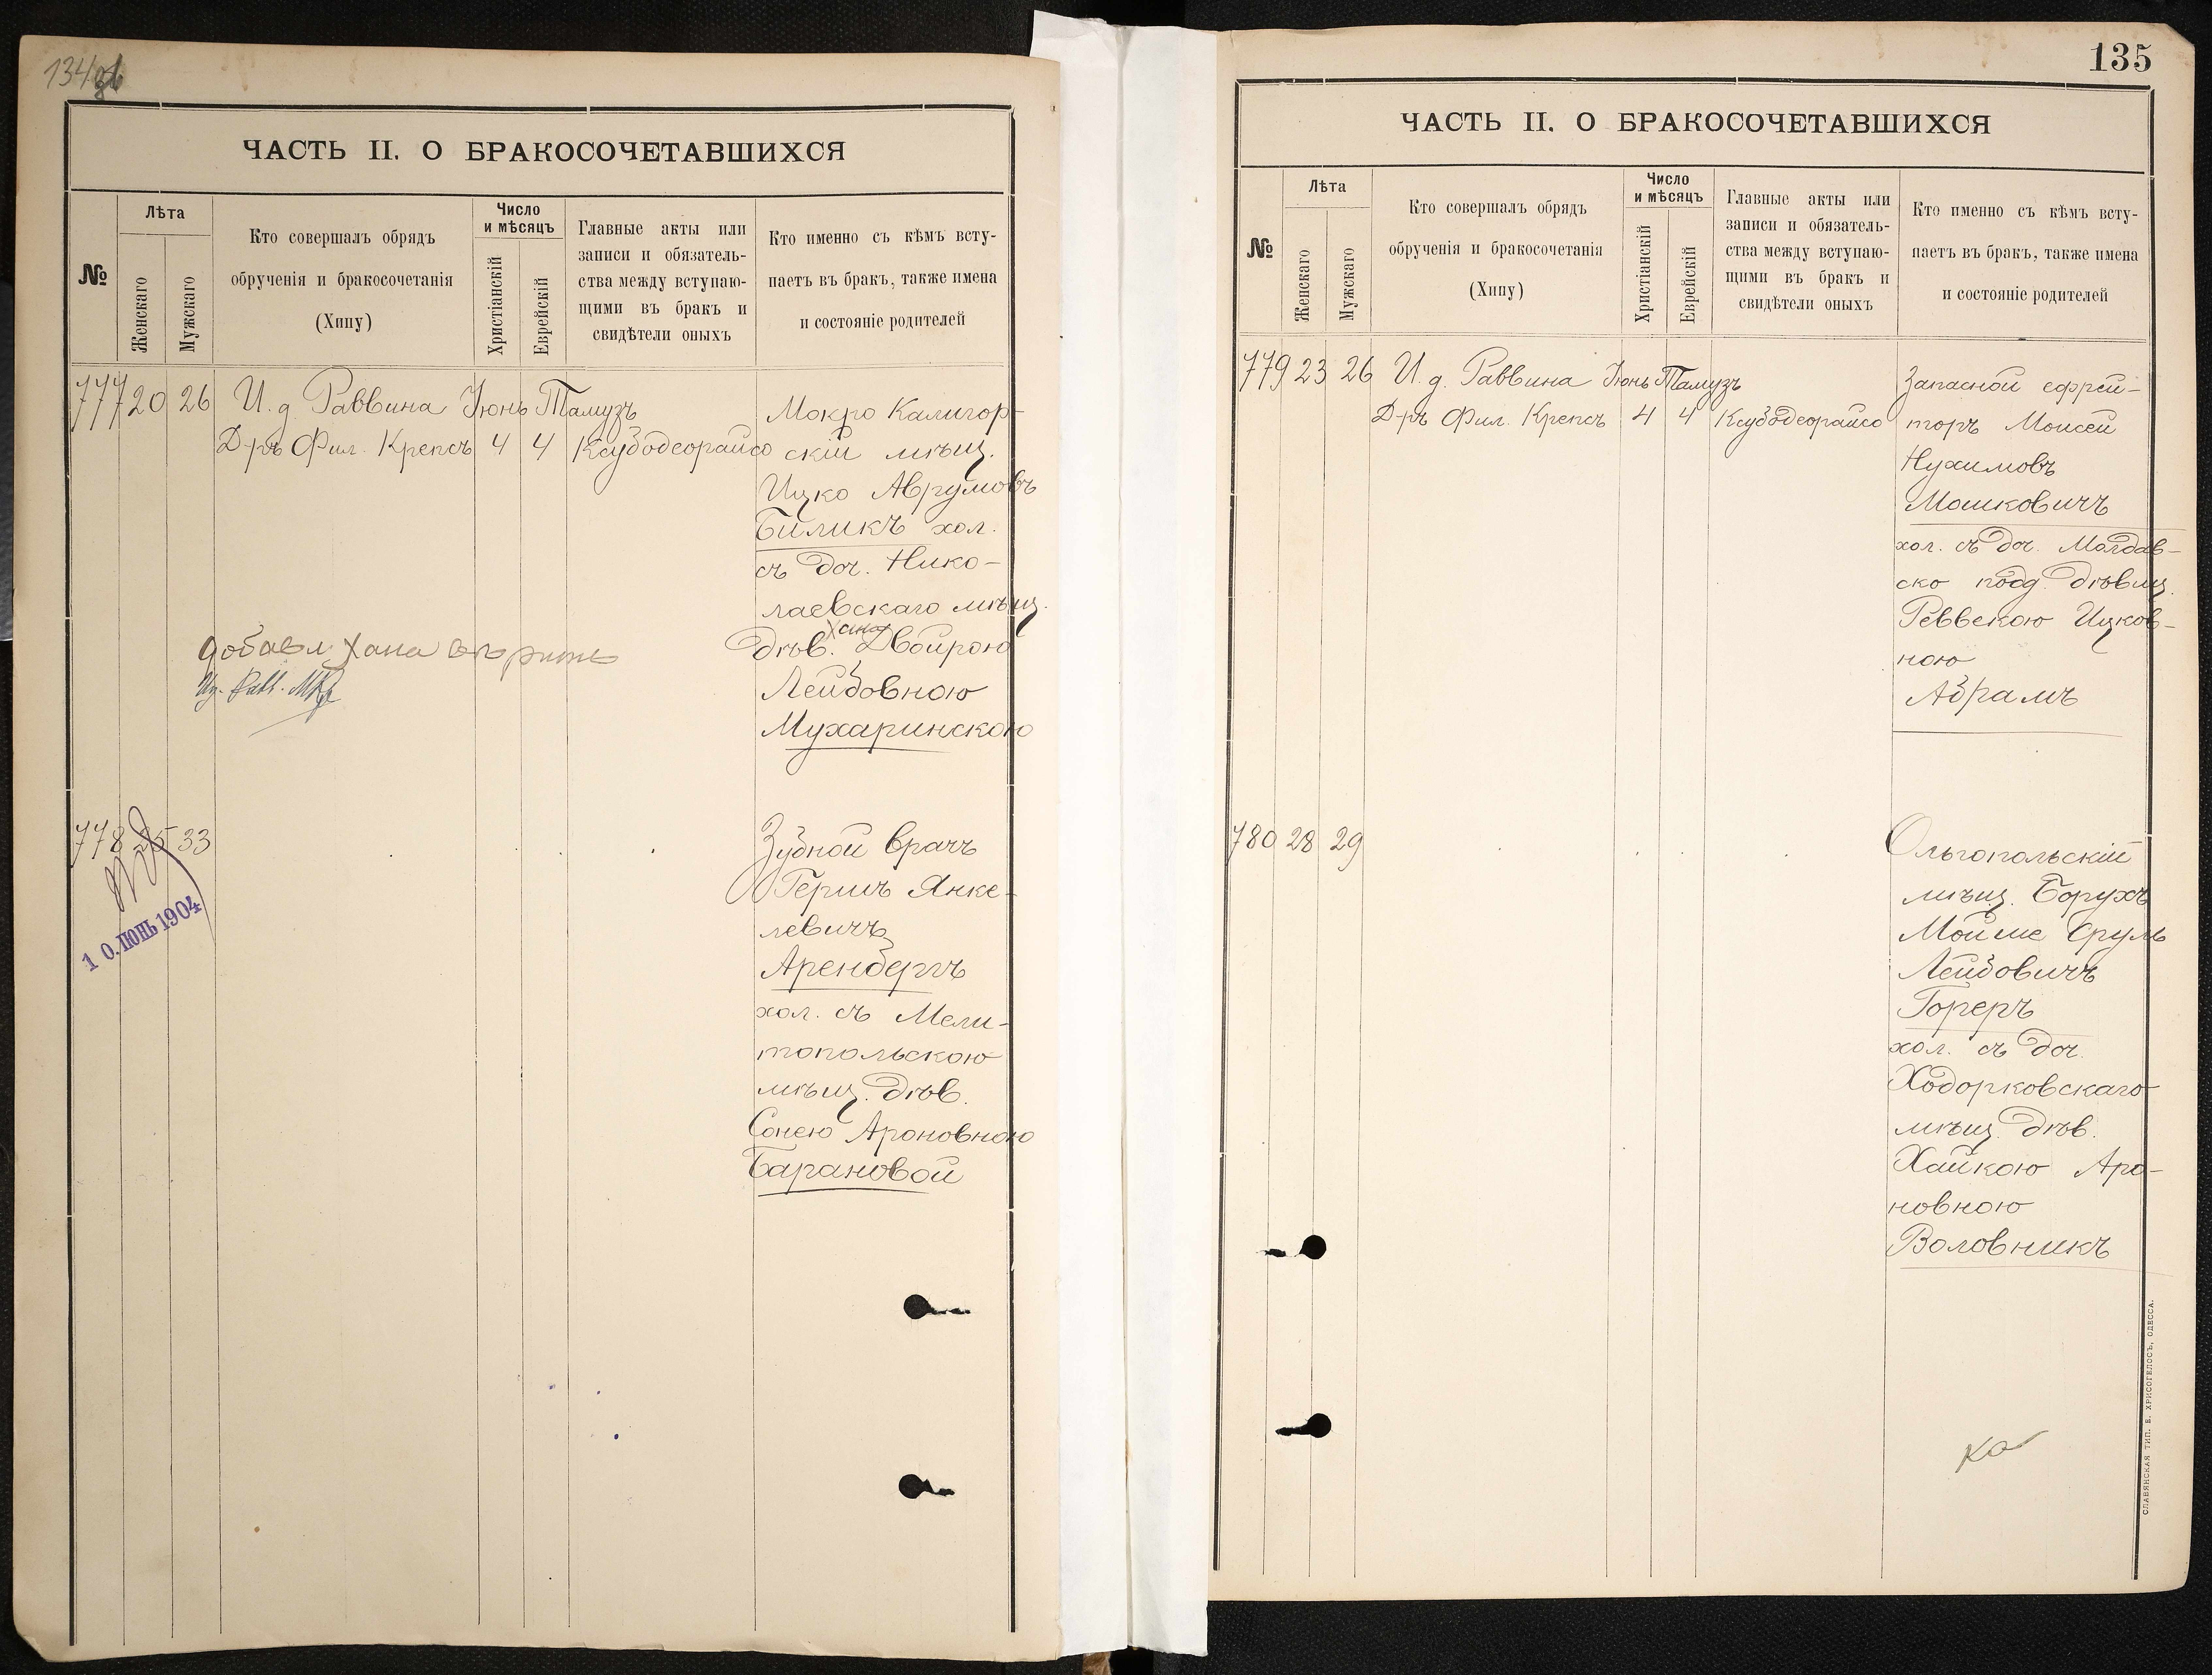 134 об
ЧАСТЬ II. О БРАКОСОЧЕТАВШИХСЯ
№
Лѣта
Женскаго
Мужскаго
Кто совершалъ обрядъ
обрученія и бракосочетанія
(Хипу)
Число
и мѣсяцъ
Христіанскій
Еврейскій
Главные акты или
записи и обязатель-
ства между вступаю-
щими въ бракъ и
свидѣтели оныхъ
Кто именно съ кѣмъ всту-
паетъ въ бракъ, также имена
и состояніе родителей
777 20 26 И. д. Раввина Іюнь Тамузъ
Д-ръ Фил. Крепсъ 4 4 Ксубодеорайсо
Мокро Калигор-
скій мѣщ.
Ицко Аврумовъ
Биликъ хол.
съ доч. Нико-
лаевскаго мѣщ.
Хана
дѣв. Двойрою
Лейбовною
Мухаринскою
добавл. Хана вѣрить
778 25 33
10. ІЮНЬ 1904
Зубной врачъ
Гершъ Янке-
левичъ
Аренбергъ
хол. съ Мели-
топольскою
мѣщ. дѣв.
Сонею Ароновною
Барановой
135
ЧАСТЬ II. О БРАКОСОЧЕТАВШИХСЯ
№
Лѣта
Женскаго
Мужскаго
Кто совершалъ обрядъ
обрученія и бракосочетанія
(Хипу)
Число
и мѣсяцъ
Христіанскій
Еврейскій
Главные акты или
записи и обязатель-
ства между вступаю-
щими въ бракъ и
свидѣтели оныхъ
Кто именно съ кѣмъ всту-
паетъ въ бракъ, также имена
и состояніе родителей
779 23 26 И. д. Раввина Іюнь Тамузъ
Д-ръ Фил. Крепсъ 4 4 Ксубодеорайсо
Запасной ефрей-
торъ Моисей
Нухимовъ
Мошковичъ
хол. съ доч. Молдав-
ско подд. дѣвиц.
Реввекою Ицков-
ною
Абрамъ
780 28 29
Ольгопольскій
мѣщ. Борухъ
Мойше Сруль
Лейбовичъ
Гореръ
хол. съ доч.
Ходорковскаго
мѣщ. дѣв.
Хайкою Аро-
новною
Воловникъ
СЛАВЯНСКАЯ ТИП. Е. ХРИСОГЕЛОСЪ, ОДЕССА.